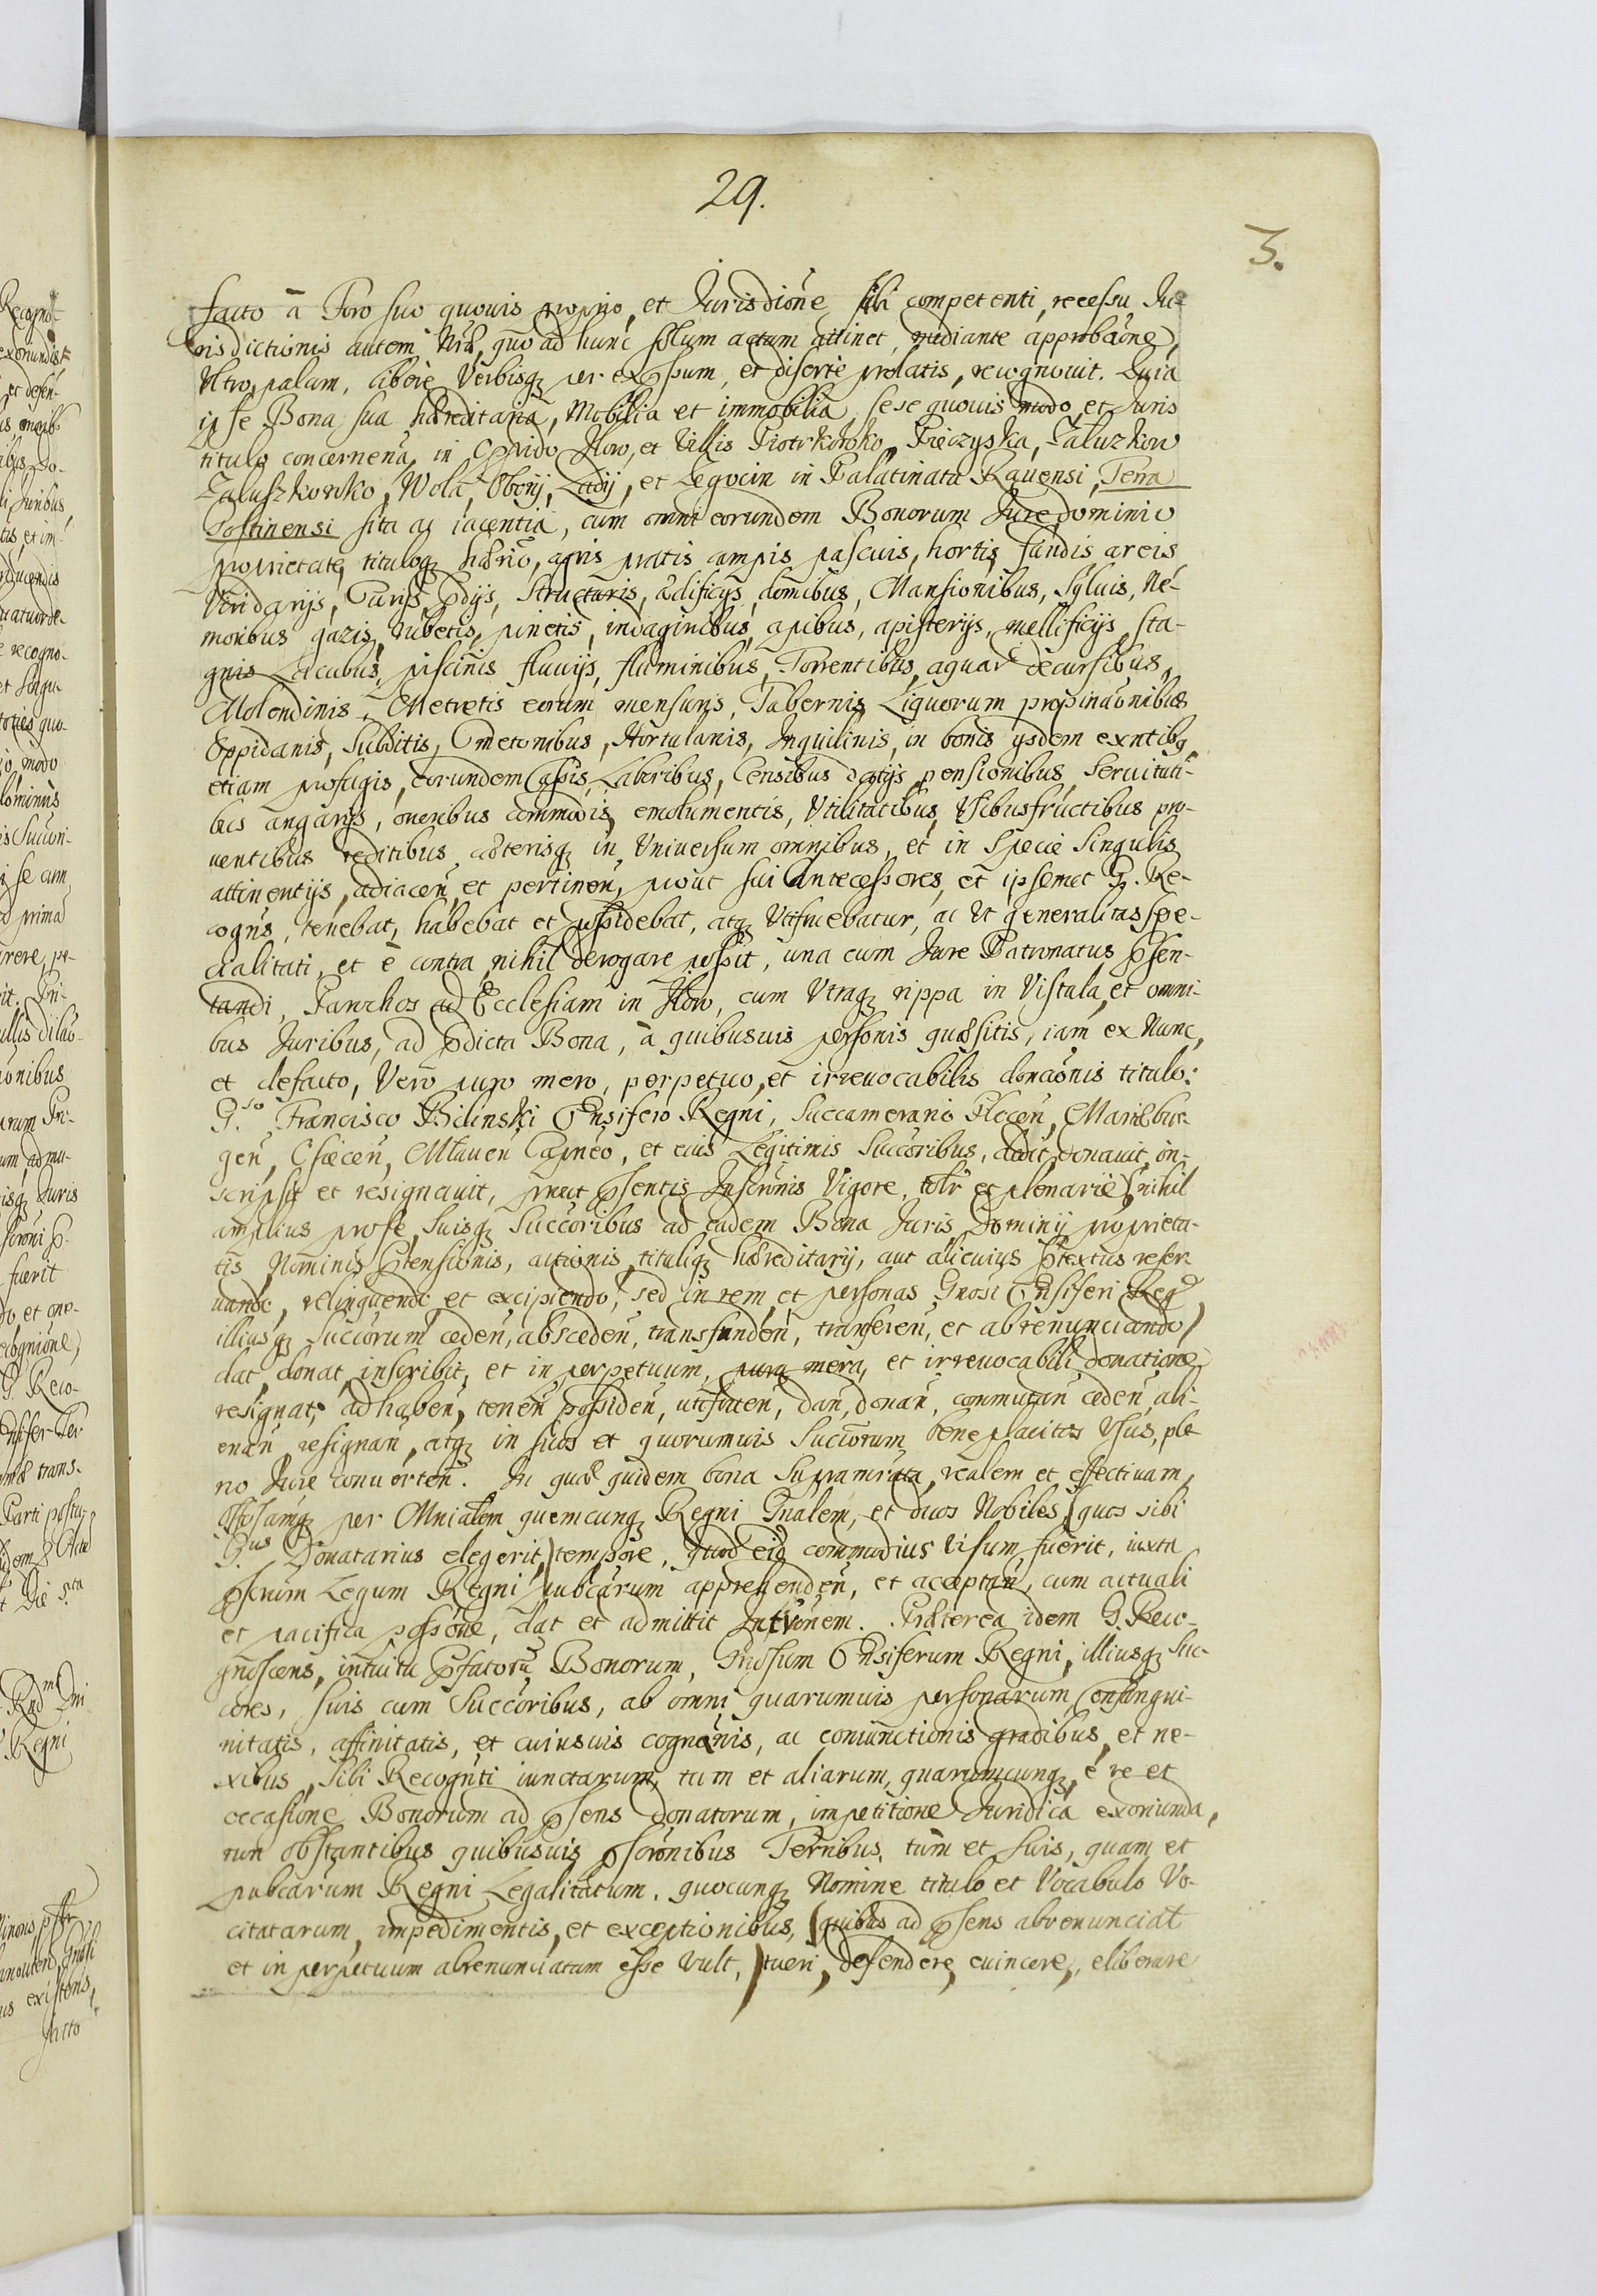 29.
3.
facto à Foro suo quovis proprio, et Jurisdione sibi competenti, recessu Ju-
risdictionis autem Nrae, quo ad hunc solum actum attinet, mediante approbaone,
Ultro, palam, libere Verbisq per expssum, et diserte prolatis, recognovit. Quia
ipse Bona sua haereditaria, Mobilia et immobilia sese quovis modo et Juris
titulo concernena, in Oppido Iłow, et Villis Piotrkowko, Pieczyska, Załuzkow
Załuszkowko, Wola, Obory, Lady, et Legocin in Palatinatu Ravensi, Terra
Gostinensi sita ac iacentia, cum omni eorundem Bonorum Jure, dominio
proprietate, tituloq haerio, agris pratis campis pascuis, hortis fundis areis
Viridarijs, Curijs, pdijs, Structuris, aedificijs, domibus, Mansionibus, Sylvis, Ne-
moribus gazis, rubetis, pinetis, indaginibus, apibus, apisterijs, mellificijs, sta-
gnis Lacubus, piscinis fluvijs, fluminibus, Torrentibus, aquar decursibus,
Molendinis, Metretis eorum mensuris, Tabernis Liquorum propinaonibus
Oppidanis, Subditis, Cmetonibus, Hortulanis, Inquilinis, in bonis ysdem exntibq
etiam profugis, eorundem Laboribus, Censibus datijs pensionibus, Servituti-
bus angarijs, oneribus commodis, emolumentis, Utilitatibus, Usibusfructibus pro-
ventibus reditibus caeterisq in Universum omnibus, et in Specie Singulis
attinentijs, adiacen et pertinen, prout sui Antecessores, et ipsemet G. Re-
cogns, tenebat, habebat et possidebat, atq Utifruebatur, ac Ut generalitas spe-
cialitati, et è contra nihil derogare possit, una cum Jure Patronatus psen-
tandi, Parochos ad Ecclesiam in Iłow, cum Utraq rippa in Vistula, et omni-
bus Juribus, ad pdicta Bona, à quibusvis personis quaesitis, iam ex Nunc,
et defacto, Vero puro mero, perpetuo, et irrevocabilis donaonis titulo:
G.so Francisco Bilinski Ensifero Regni, Succamerario Plocen, Mariaebur-
gen, Osiecen, Mlaven Capneo, et eius Legitimis Succoribus, dedit, donavit, in-
scripsit et resignavit, prout psentis Inscronis Vigore, totlr et plenarie (nihil
amplius prose, Suisq Succoribus ad eadem Bona Juris, Dominij proprieta-
tis Nominis ptensionis, actionis tituliq haereditarij, aut alicuius ptextus reser-
vando, relinquendo et excipiendo, sed in rem et personas Gnosi Ensiferi Regni
illiusq Succorum ceden, absceden, transfunden, transferen, et abrenunciando)
dat, donat, inscribit, et in perpetuum, pura mera, et irrevocabili donatione
resignat, ad haben, tenen possiden, utifruen, dan, donan, commutan ceden ali-
enan resignan, atq in suos et quorumvis Succorum beneplacitos Usus, ple-
no Jure converten. In quae quidem bona Supramrata, realem et effectivam,
per Mnialem quemcunq Regni Gnalem, et duos Nobiles, (quos sibi
G.us Donatarius elegerit,) tempore, quod eid commodius Visum fuerit, iuxta
pscrum Legum Regni pubcarum apprehenden, et acceptan, cum actuali
et pacifica possone, dat et admittit Intronem. Praeterea idem G. Reco-
gnoscens, intuitu pfatoru Bonorum, Gnosum Ensiferum Regni, illiusq Suc-
cores, suis cum Succoribus, ab omni quarumvis personarum, Consangui-
nitatis, affinitatis, et cuiusvis cognaonis, ac coniunctionis gradibus, et ne-
xibus, sibi Recognti iunctarum, tum et aliarum, quarumcunq, è re et
occasione Bonorum ad psens donatorum, impetitione Juridica exoriunda,
non obstantibus quibusvis pscronibus Terribus, tum et suis, quam et
pubcarum Regni Legalitatum, quocunq Nomine titulo et Vocabulo Vo-
citatarum, impedimentis, et exceptionibus, (quibus ad psens abrenunciat
et in perpetuum abrenunciatum esse vult,) tueri, defendere, evincere, eliberare